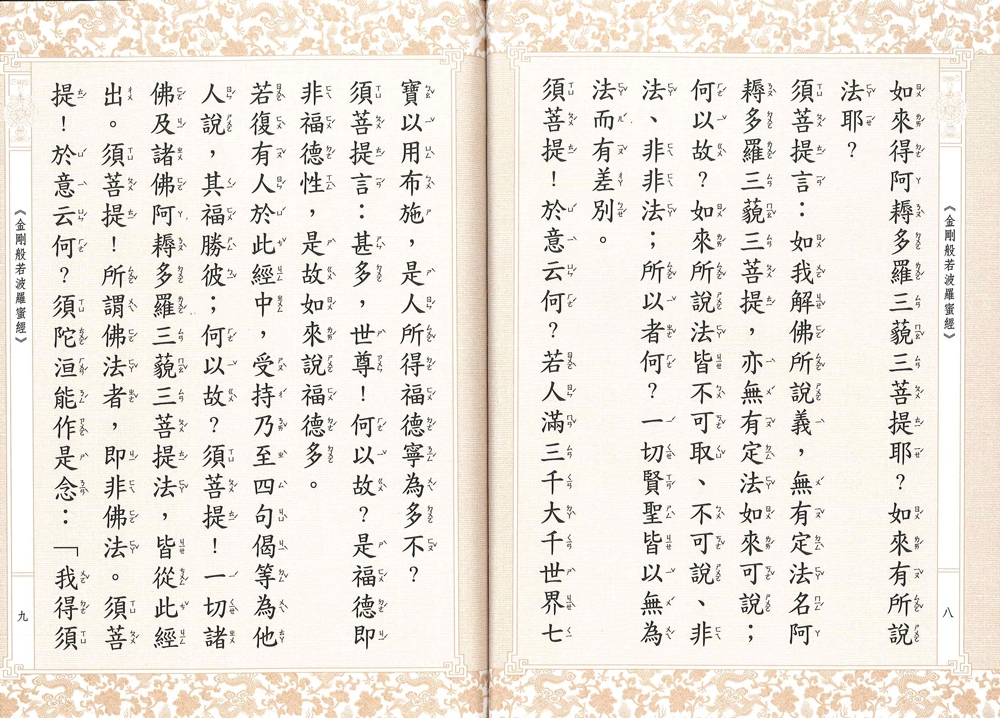 《金剛般若波羅蜜經》
八
如來得阿耨多羅三藐三菩提耶？如來有所說
法耶？
須菩提言：如我解佛所說義，無有定法名阿
耨多羅三藐三菩提，亦無有定法如來可說；
何以故？如來所說法皆不可取、不可說、非
法、非非法；所以者何？一切賢聖皆以無為
法而有差別。
須菩提！於意云何？若人滿三千大千世界七
寶以用布施，是人所得福德寧為多不？
須菩提言：甚多，世尊！何以故？是福德即
非福德性，是故如來說福德多。
若復有人於此經中，受持乃至四句偈等為他
人說，其福勝彼；何以故？須菩提！一切諸
佛及諸佛阿耨多羅三藐三菩提法，皆從此經
出。須菩提！所謂佛法者，即非佛法。須菩
提！於意云何？須陀洹能作是念：「我得須
《金剛般若波羅蜜經》
九